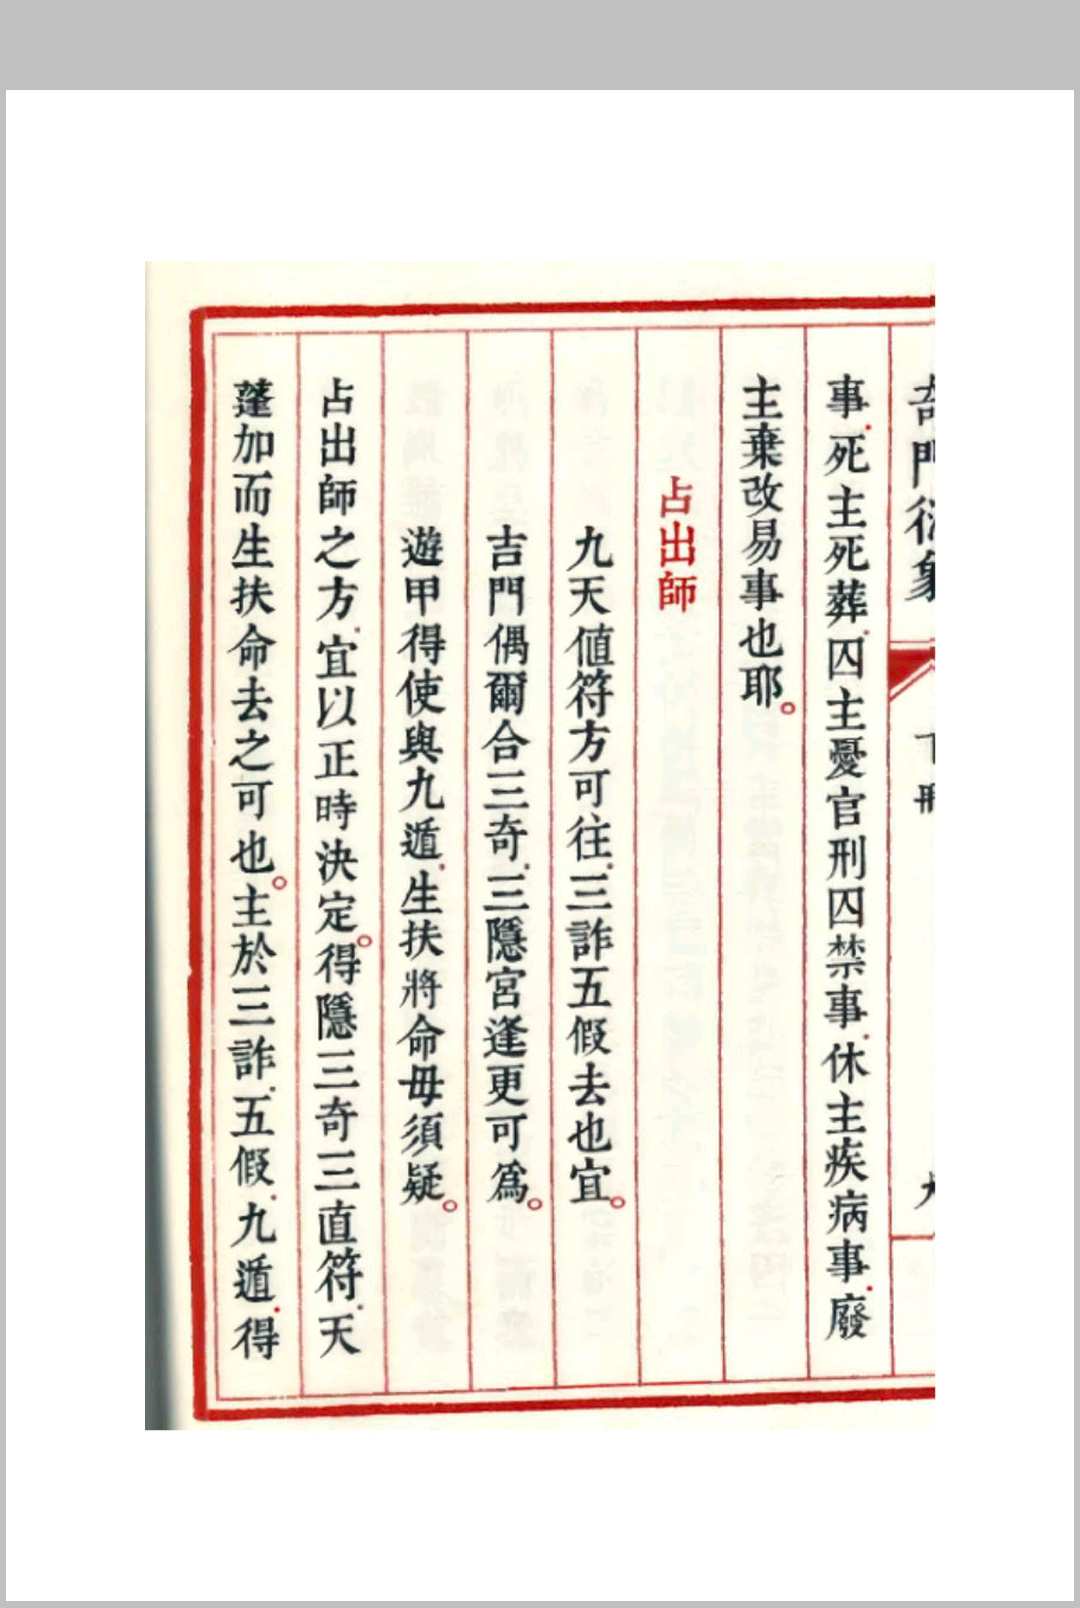 奇門衍象
下冊
事.死主死葬.囚主憂官刑囚禁事.休主疾病事.廢
主棄改易事也耶。
占出師
九天値符方可往.三詐五假去也宜。
吉門偶爾合三奇.三隱宮逢更可爲。
遊甲得使與九遁.生扶將命毋須疑。
占出師之方.宜以正時決定。得隱三奇三直符.天
蓬加而生扶命去之可也。主於三詐.五假.九遁.得